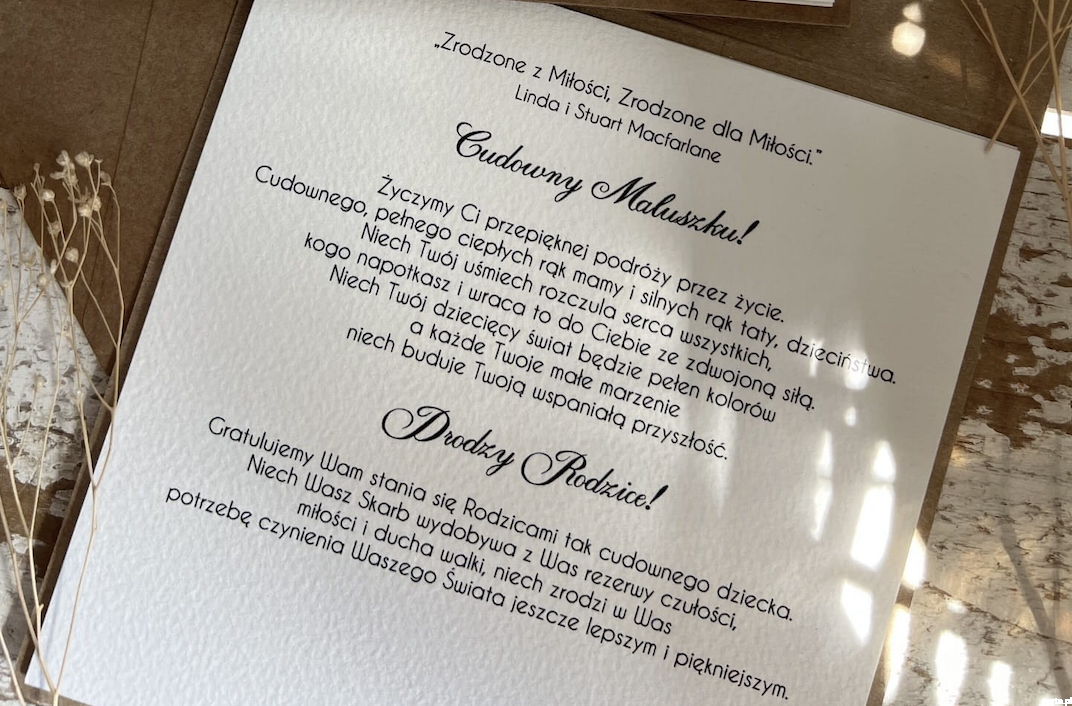 „Zrodzone z Miłości, Zrodzone dla Miłości."
Linda i Stuart Macfarlane
Cudowny Maluszku!
Życzymy Ci przepięknej podróży przez życie.
Cudownego, pełnego ciepłych rąk mamy i silnych rąk taty, dzieciństwa.
Niech Twój uśmiech rozczula serca wszystkich,
kogo napotkasz i wraca to do Ciebie ze zdwojoną siłą.
Niech Twój dziecięcy świat będzie pełen kolorów
a każde Twoje małe marzenie
niech buduje Twoją wspaniałą przyszłość.
Drodzy Rodzice!
Gratulujemy Wam stania się Rodzicami tak cudownego dziecka.
Niech Wasz Skarb wydobywa z Was rezerwy czułości,
miłości i ducha walki, niech zrodzi w Was
potrzebę czynienia Waszego Świata jeszcze lepszym i piękniejszym.